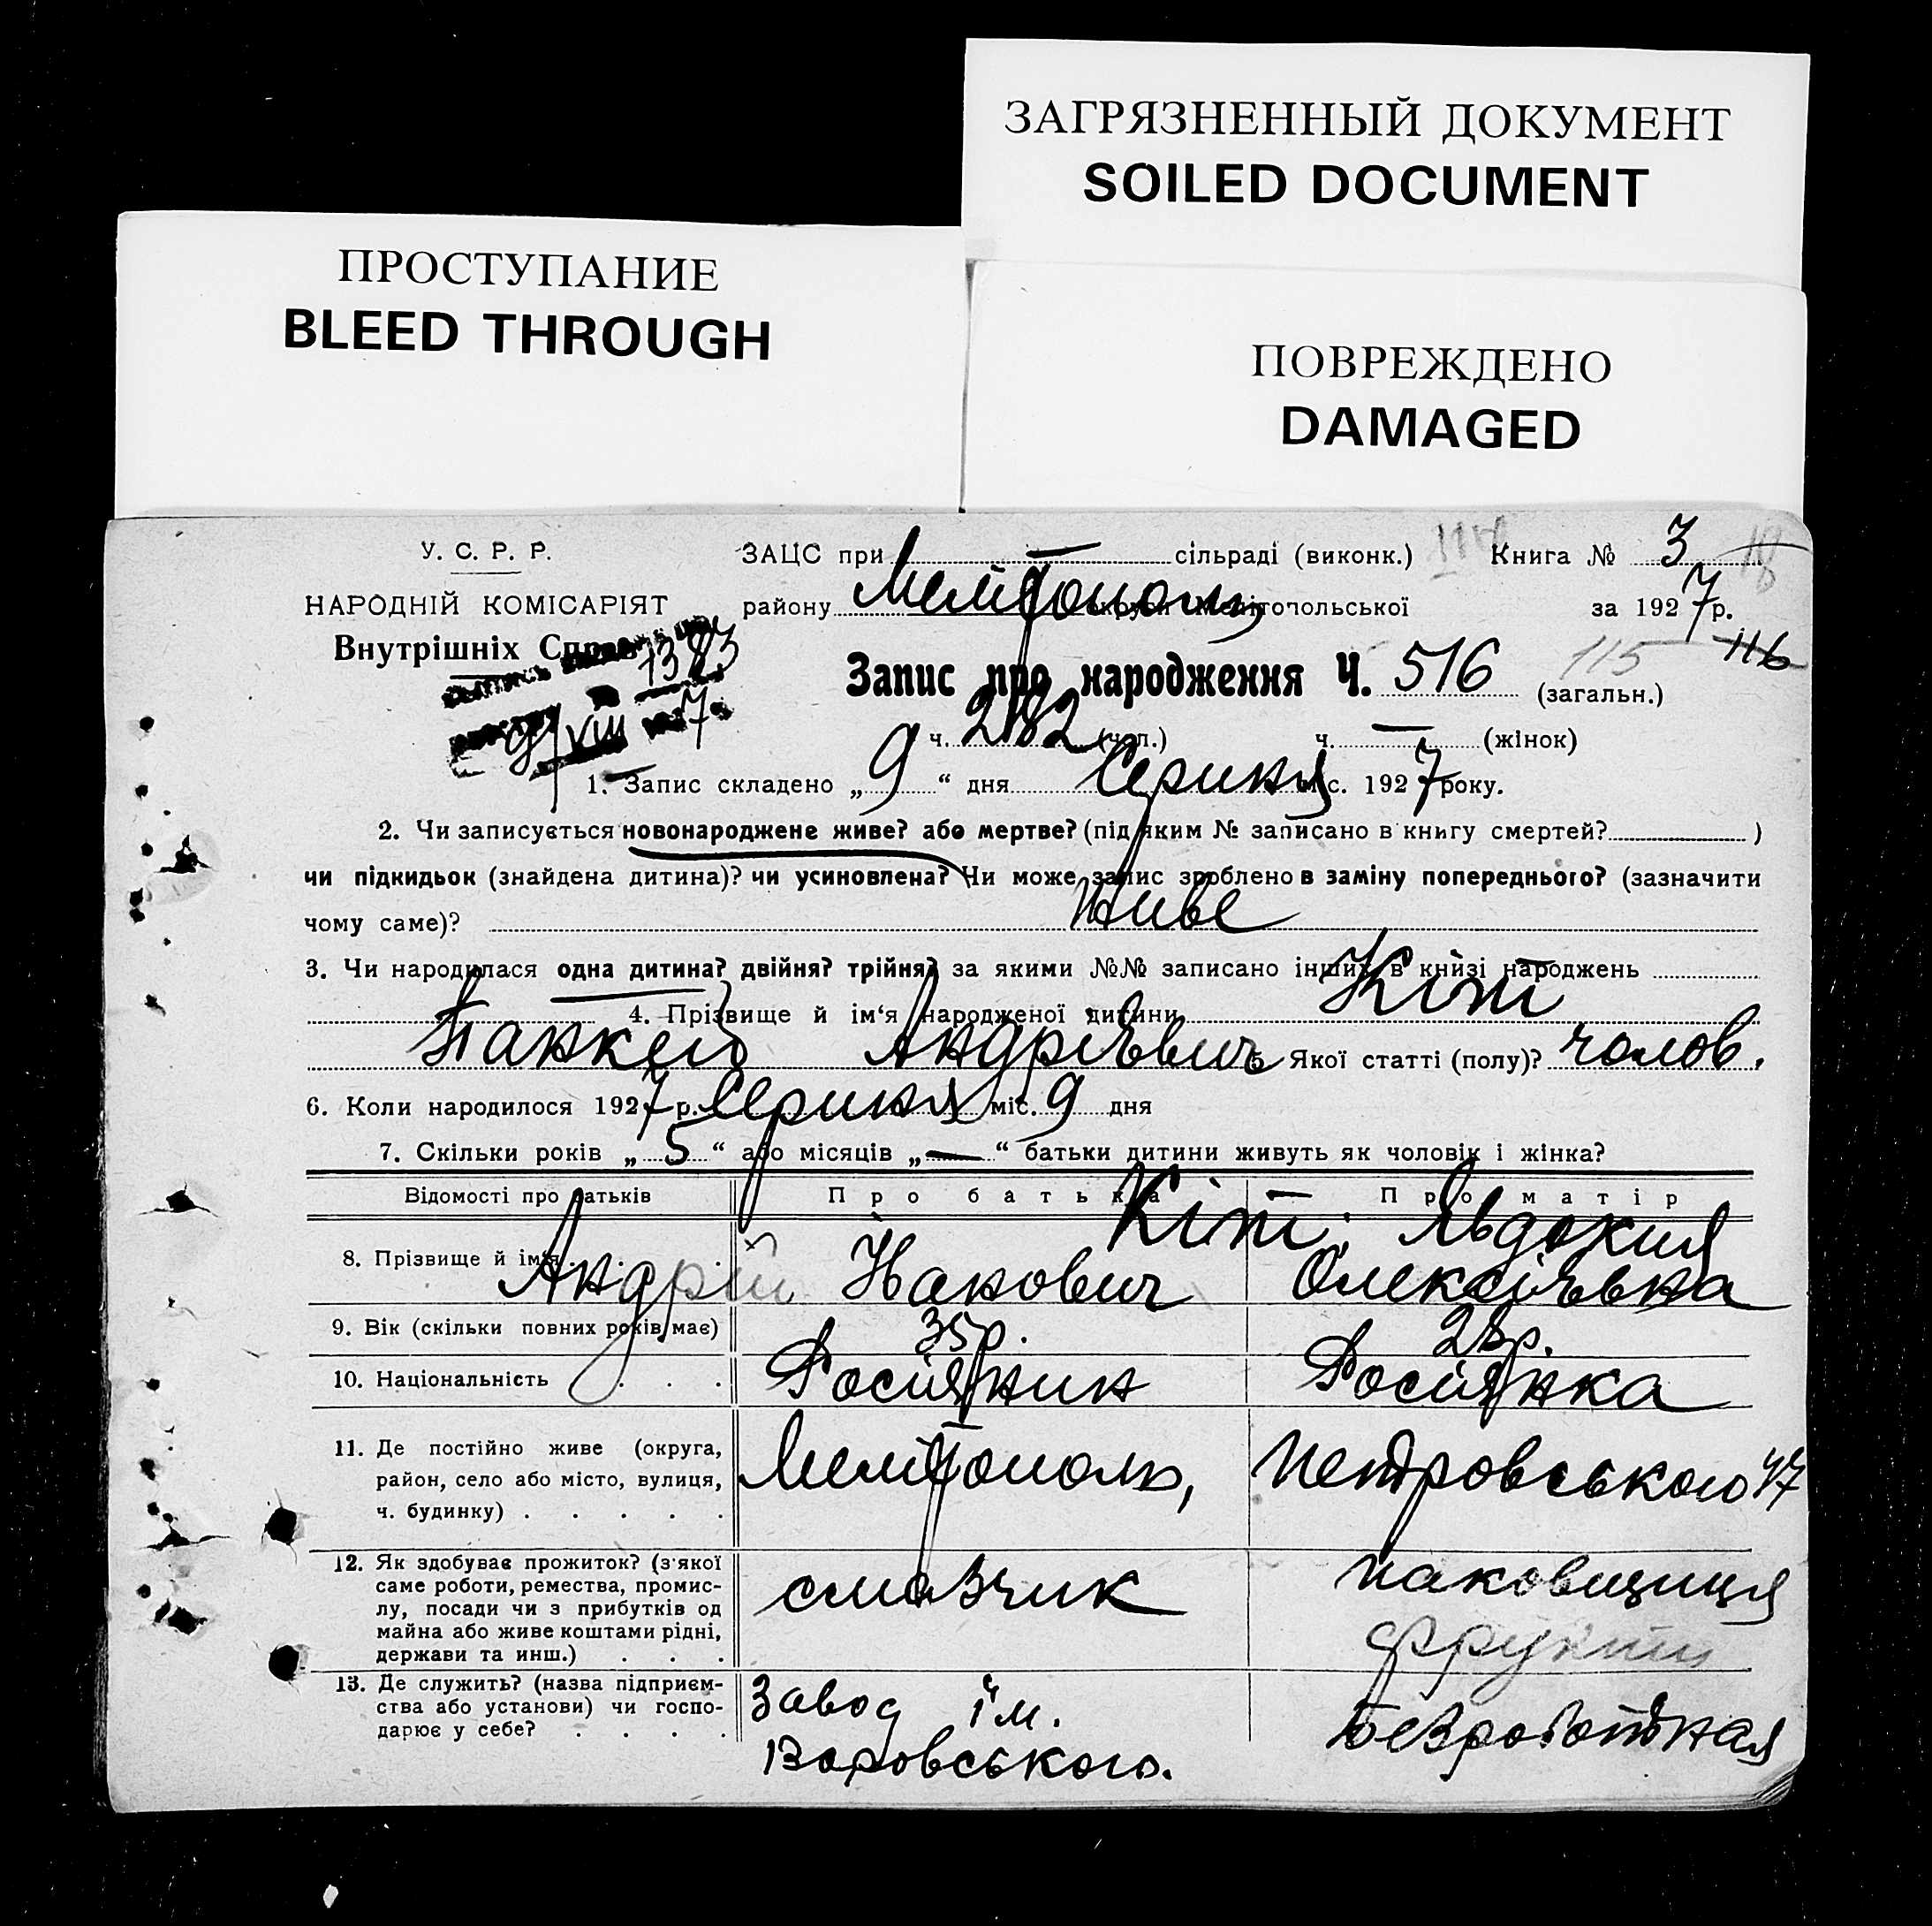 ЗАГРЯЗНЕННЫЙ ДОКУМЕНТ
SOILED DOCUMENT
ПРОСТУПАНИЕ
BLEED THROUGH
ПОВРЕЖДЕНО
DAMAGED
У. С. Р. Р.
НАРОДНІЙ КОМІСАРІЯТ
Внутрішніх Справ
1383
9/VIII 7
ЗАЦС при — сільраді (виконк.) Книга № 3
району Мелітополь округи Мелітопольської за 1927 р.
115 116
Запис про народження Ч. 516 (загальн.)
ч. 282 (чол.) ч. — (жінок)
1. Запис складено „ 9 “ дня Серпня міс. 1927 року.
2. Чи записується новонароджене живе? або мертве? (під яким № записано в книгу смертей? )
чи підкидьок (знайдена дитина)? чи усиновлена? Чи може запис зроблено в заміну попереднього? (зазначити
чому саме)? живе
3. Чи народилася одна дитина? двійня? трійня? за якими №№ записано інших в книзі народжень
4. Прізвище й ім‘я народженої дитини Кіт
Андріевич 5. Якої статті (полу)? чолов.
6. Коли народилося 1927 р. Серпня міс. 9 дня
7. Скільки років „ 5 “ або місяців „ — “ батьки дитини живуть як чоловік і жінка?
Відомості про батьків Про батька Про матір
8. Прізвище й ім‘я Кіт Андрій Іванович Кіт Явдокия Олексіевна
9. Вік (скільки повних років має) 35р. 28р.
10. Національність Росіянин Росіянка
11. Де постійно живе (округа,
район, село або місто, вулиця,
ч. будинку) Мелітополь, Петровського 47
12. Як здобуває прожиток? (з'якої
саме роботи, ремества, промис-
лу, посади чи з прибутків од
майна або живе коштами рідні,
держави та инш.)
смазчик
паковщиця
фрукти
13. Де служить? (назва підприєм-
ства або установи) чи госпо-
дарює у себе?
Завод ім.
Воровського.
безроботная